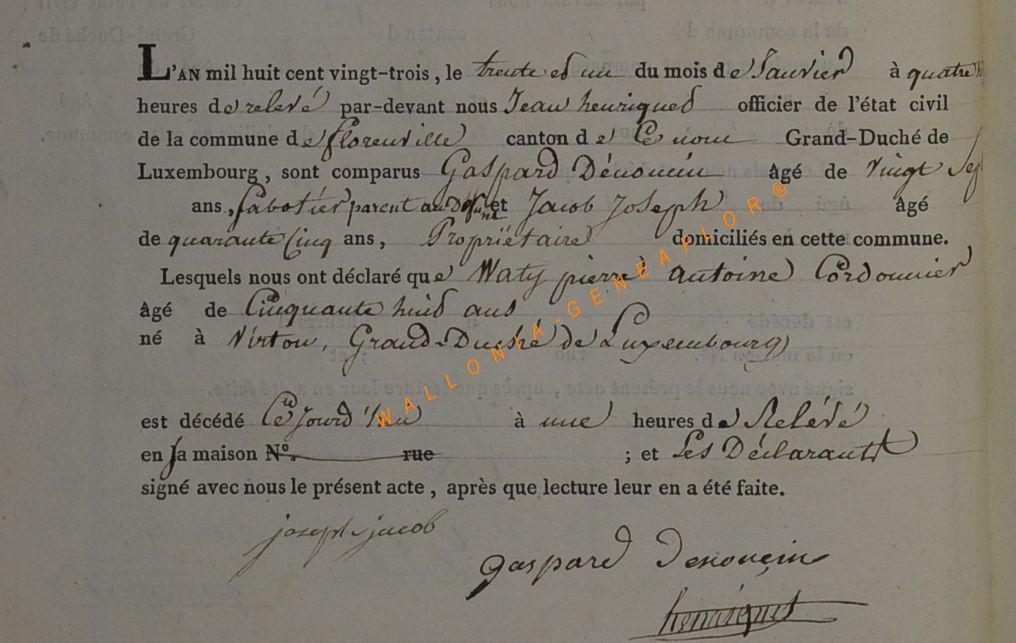 L'AN mil huit cent vingt-trois, le trente et un du mois de Janvier à quatre
heures de relevé par-devant nous Jean henriques officier de l'état civil
de la commune de florenville canton de Ce nom Grand-Duché de
Luxembourg, sont comparus Gaspard Dénoncin âgé de vingt Sep
ans, Sabotier parent au Défunt et Jacob Joseph âgé
de quarante Cinq ans, Propriétaire domiciliés en cette commune.
Lesquels nous ont déclaré que Waty pierre antoine Cordonnier
âgé de Cinquante huit ans
né à Virton, Grand-Duché de Luxembourg
est décédé Ce Jourd'hui à une heures de Relévé
en sa maison N°. rue ; et Les Déclarants
signé avec nous le présent acte, après que lecture leur en a été faite.
joseph jacob
gaspard denoncin
henriquet
WALLONIA-GENEAFLOR®